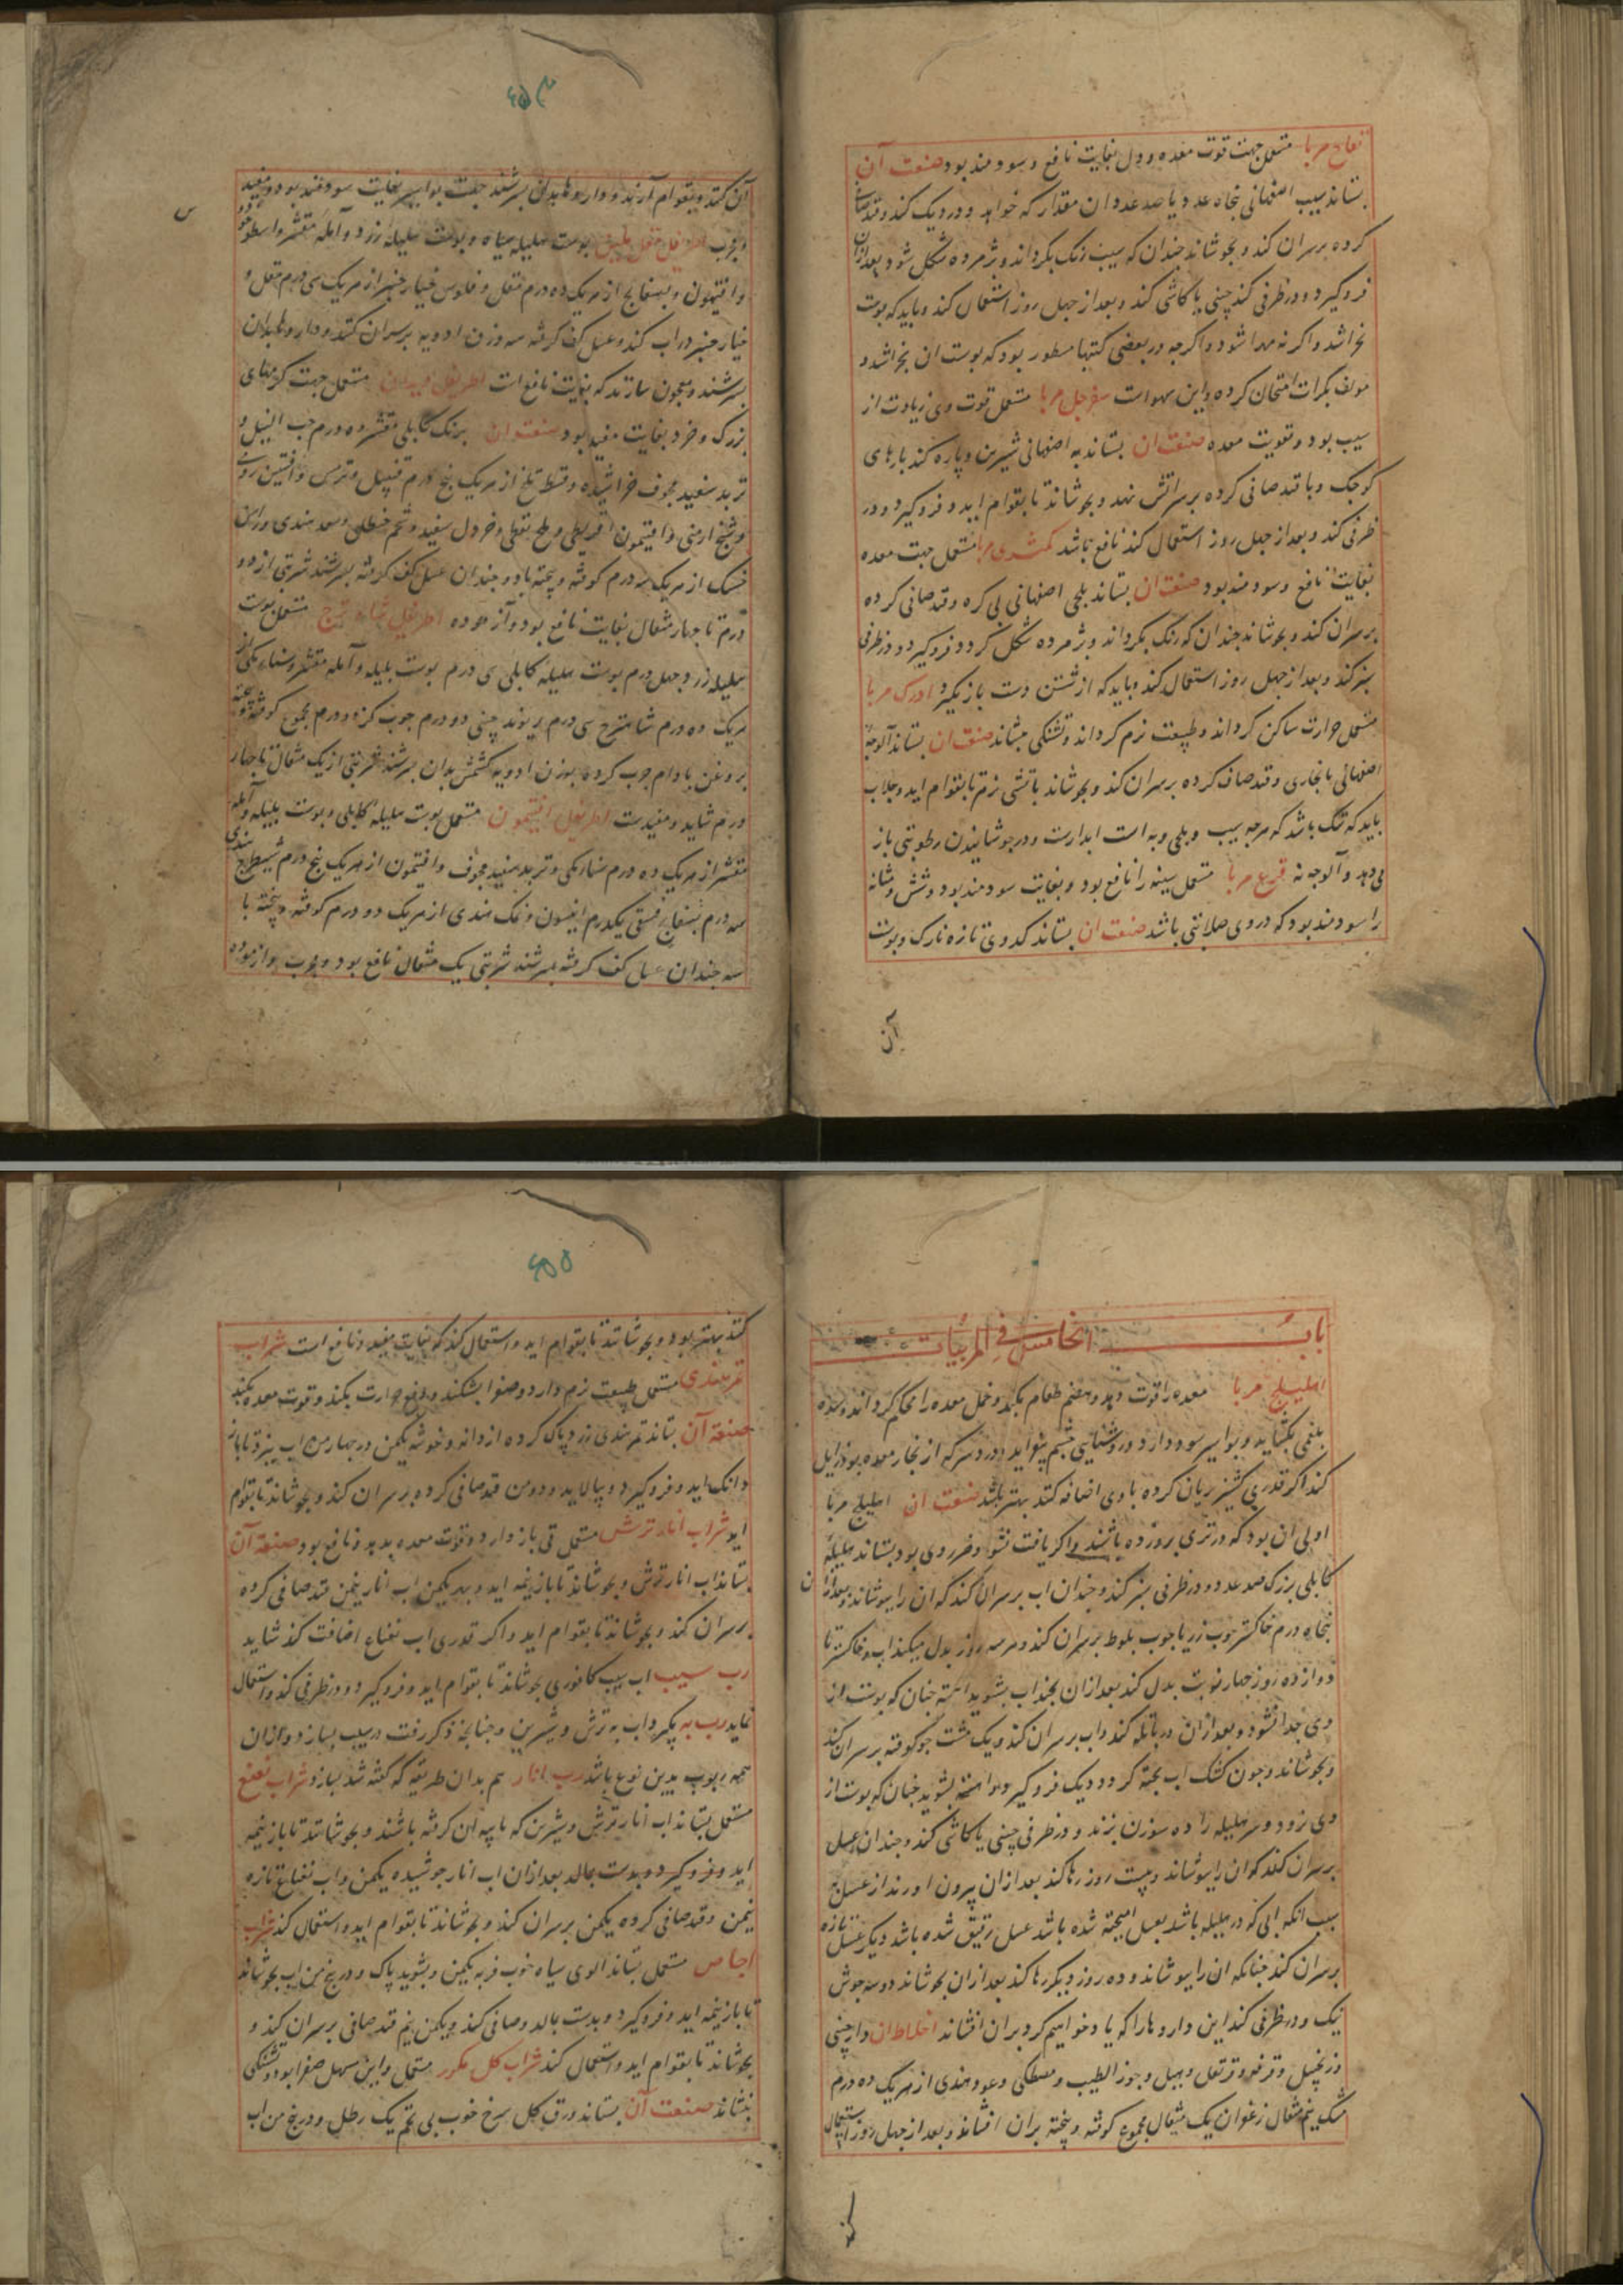 تفاح مربا مستعمل جهت قوت معده و دل بغایت نافع و سودمند بود صنعت آن
بستاند سیب اصفهانی پنجاه عدد یا صد عدد ان مقدار که خواهد و در دیک کند و قند صاف
کرده بر سر ان کند و بجوشاند چندان که سیب رنک بکرداند و پژمرده شکل شود بعد ازان
فرو کیرد و در ظرفی کند چینی یا کاشی کند و بعد از چهل روز استعمال کند و باید که پوست
نخراشد و اکر نه مهرا شود و اکرچه در بعضی کتبها مسطور بود که پوست ان بخراشد و
مولف بکرات امتحان کرده و این سهو است سفرجل مربا مستعمل قوت وی زیادت از
سیب بود و تقویت معده صنعت ان بستاند به اصفهانی شیرین و پاره کند پارهای
کوچک و با قند صافی کرده بر سر اتش نهد و بجوشاند تا بقوام اید و فرو کیرد و در
ظرفی کند و بعد از چهل روز استعمال کند نافع باشد کمثری مربا مستعمل جهت معده
بغایت نافع و سودمند بود صنعت ان بستاند بلجی اصفهانی بی کره و قند صافی کرده
بر سر ان کند و بجوشاند چندان که رنک بکرداند و پژمرده شکل کردد فرو کیرد و در ظرفی
سبز کند و بعد از چهل روز استعمال کند و باید که از شستن دست باز نکیرد ادرک مربا
مستعمل حرارت ساکن کرداند و طبیعت نرم کرداند و تشنکی بنشاند صنعت ان بستاند آلوجه
اصفهانی یا بخاری و قند صاف کرده بر سر ان کند و بجوشاند باتشی نرم تا بقوام اید و جلاب
باید که تنک باشد که هرچه سیب و بلجی و به است ابدارست و در جوشانیدن رطوبتی باز
می دهد و آلوجه نه قرع مربا مستعمل سینه را نافع بود و بغایت سودمند بود و شش و مثانه
را سودمند بود که در وی صلابتی باشد صنعت ان بستاند کدوی تازه نازک و پوست
آن
۶۵۴
آن کند و بقوام آرند و داروها بدان بسرشند جهت بواسیر بغایت سودمند بود و مفید
و مجرب اطریفل مقل ملین پوست هلیله سیاه و پوست هلیله زرد و آمله مقشر و اسطوخودوس
و افتیمون و بسفایج از هریک ده درم مقل و فلوس خیار چنبر از هریک سی درم مقل و
خیار چنبر در اب کند و عسل کف کرفته سه وزن ادویه بر سر ان کنند و داروها بدان
بسرشند و معجون سازند که بغایت نافع است اطریفل دیدان مستعمل جهت کرمهای
بزرک و خرد بغایت مفید بود صنعت ان برنک کابلی مقشر ده درم حب النیل و
تربد سفید مجوف خراشیده و قسط تلخ از هریک پنج درم قنبیل و ترمس و افسنتین رومی
و شیح ارمنی و افتیمون اقریطی و ملح نفطی و خردل سفید و شحم حنظل و سعد هندی و راسن
خشک از هریک سه درم کوفته و بیخته با دو چندان عسل کف کرفته بسرشند شربتی از دو
درم تا چهار مثقال بغایت نافع بود و آزموده اطریفل شاه ترج مستعمل پوست
هلیله زرد چهل درم پوست هلیله کابلی سی درم پوست بلیله و آمله مقشر و سناء مکی از
هریک ده درم شاهترج سی درم ریوند چینی دو درم جوب کز دو درم مجموع کوفته و بیخته
بروغن بادام چرب کرده بوزن ادویه کشمش بدان بسرشند شربتی از یک مثقال تا چهار
درم شاید و مفیدست اطریفل افتیمون مستعمل پوست هلیله کابلی و پوست بلیله و آمله
مقشر از هریک ده درم سناء مکی و تربد سفید مجوف و افتیمون از هریک پنج درم شیطرج هندی
سه درم بسفایج فستقی یکدرم انیسون و نمک هندی از هریک دو درم کوفته و بیخته با
سه چندان عسل کف کرفته بسرشند شربتی یک مثقال نافع بود و مجرب و ازموده
باب الخامس فی المربیات
اهلیلج مربا معده را قوت دهد و هضم طعام بکند و خمل معده را محکم کرداند و سده
بلغمی بکشاید و بواسیر سود دارد و روشنایی چشم بیفزاید و درد سر که از بخار معده بود زایل
کند اکر قدری کشنیز بریان کرده با وی اضافه کند بهتر باشد صنعت ان اهلیلج مربا
اولی ان بود که در تری پرورده باشند و اکر یافت نشود ضرر وی بود بستاند هلیله
کابلی بزرک صد عدد و در ظرفی سبز کند و چندان اب بر سر ان کند که ان را بپوشاند و بعد ازان
پنجاه درم خاکستر چوب رز یا چوب بلوط بر سر ان کند و هر سه روز بدل میکند اب و خاکستر تا
دوازده روز چهار نوبت بدل کند بعد ازان بچند اب بشوید اهسته چنان که پوست از
وی جدا نشود و بعد ازان در پاتله کند و اب بر سر ان کند و یک مشت جو کوفته بر سر ان کند
و بجوشاند و چون کشک اب پخته کردد دیک فرو کیرد و اهسته بشوید چنان که پوست از
وی نرود و سر هلیله را ده سوزن بزند و در ظرفی چینی یا کاشی کند و چندان عسل
بر سر ان کند که ان را بپوشاند و بیست روز رها کند بعد ازان بیرون اورند از عسل
سبب انکه ابی که در هلیله باشد بعسل امیخته شده باشد عسل رقیق شده باشد دیکر عسل تازه
بر سر ان کند چنانکه ان را بپوشاند و ده روز دیکر رها کند بعد ازان بجوشاند دو سه جوش
نیک و در ظرفی کند این داروها را که یاد خواهیم کرد بر ان افشاند اخلاط ان دارچینی
و زنجبیل و قرفه و قرنفل و هیل و جوز الطیب و مصطکی و عود هندی از هریک ده درم
مشک نیم مثقال زعفران یک مثقال مجموع کوفته و بیخته بران افشاند و بعد از چهل روز استعمال
کند
۶۵۵
کنند بهتر بود و بجوشانند تا بقوام اید و استعمال کند که بغایت مفید و نافع است شراب
تمر هندی مستعمل طبیعت نرم دارد و صفرا بشکند و دفع حرارت بکند و قوت معده بدهد
صنعة آن بستاند تمر هندی زرد پاک کرده از دانه و خوشه یکمن در چهار من اب بپزد تا باز
دانک اید و فرو کیرد و بپالاید و دو من قند صافی کرده بر سر ان کند و بجوشاند تا بقوام
اید شراب انار ترش مستعمل قی باز دارد و قوت معده بدهد و نافع بود صنعة آن
بستاند اب انار ترش و بجوشاند تا باز نیمه اید و بهر یکمن اب انار نیمن قند صافی کرده
بر سر ان کند و بجوشاند تا بقوام اید و اکر قدری اب نعناع اضافت کند شاید
رب سیب اب سیب کافوری بجوشاند تا بقوام اید و فرو کیرد و در ظرفی کند و استعمال
نماید رب به بکیرد اب به ترش و شیرین و چنانچه ذکر رفت در سیب بسازد و ازان
همه ربوب بدین نوع باشد رب انار هم بدان طریقه که کفته شد بسازد شراب نعنع
مستعمل بستاند اب انار ترش و شیرین که با پیه ان کرفته باشند و بجوشانند تا باز نیمه
اید و فرو کیرد و بدست بمالد بعد ازان اب انار جوشیده یکمن و اب نعناع تازه
نیمن و قند صافی کرده یکمن بر سر ان کند و بجوشاند تا بقوام اید و استعمال کند شراب
اجاص مستعمل بستاند الوی سیاه خوب فربه یکمن و بشوید پاک و در پنج من اب بجوشاند
تا باز نیمه اید و فرو کیرد و بدست بمالد و صافی کند و یکمن نیم قند صافی بر سر ان کند و
بجوشاند تا بقوام اید و استعمال کند شراب کل مکرر مستعمل و این مسهل صفرا بود و تشنکی
بنشاند صنعت آن بستاند ورق کل سرخ خوب بی تخم یک رطل و در پنج من اب